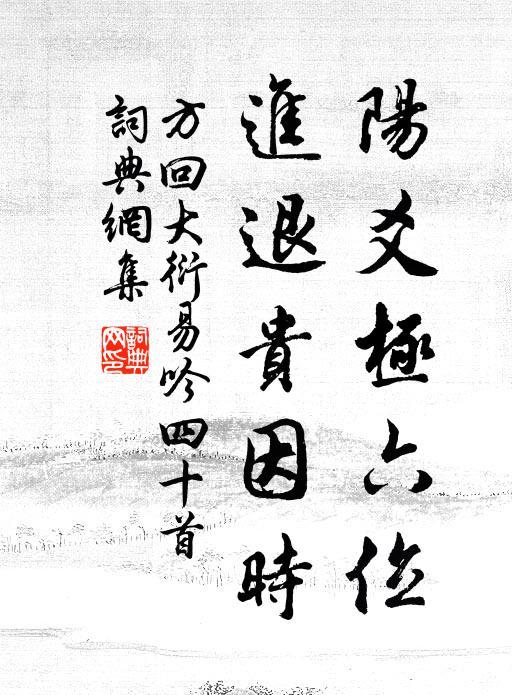 陽爻極六位
進退貴因時
方回大衍易吟四十首
詞典網集
詞典
網印